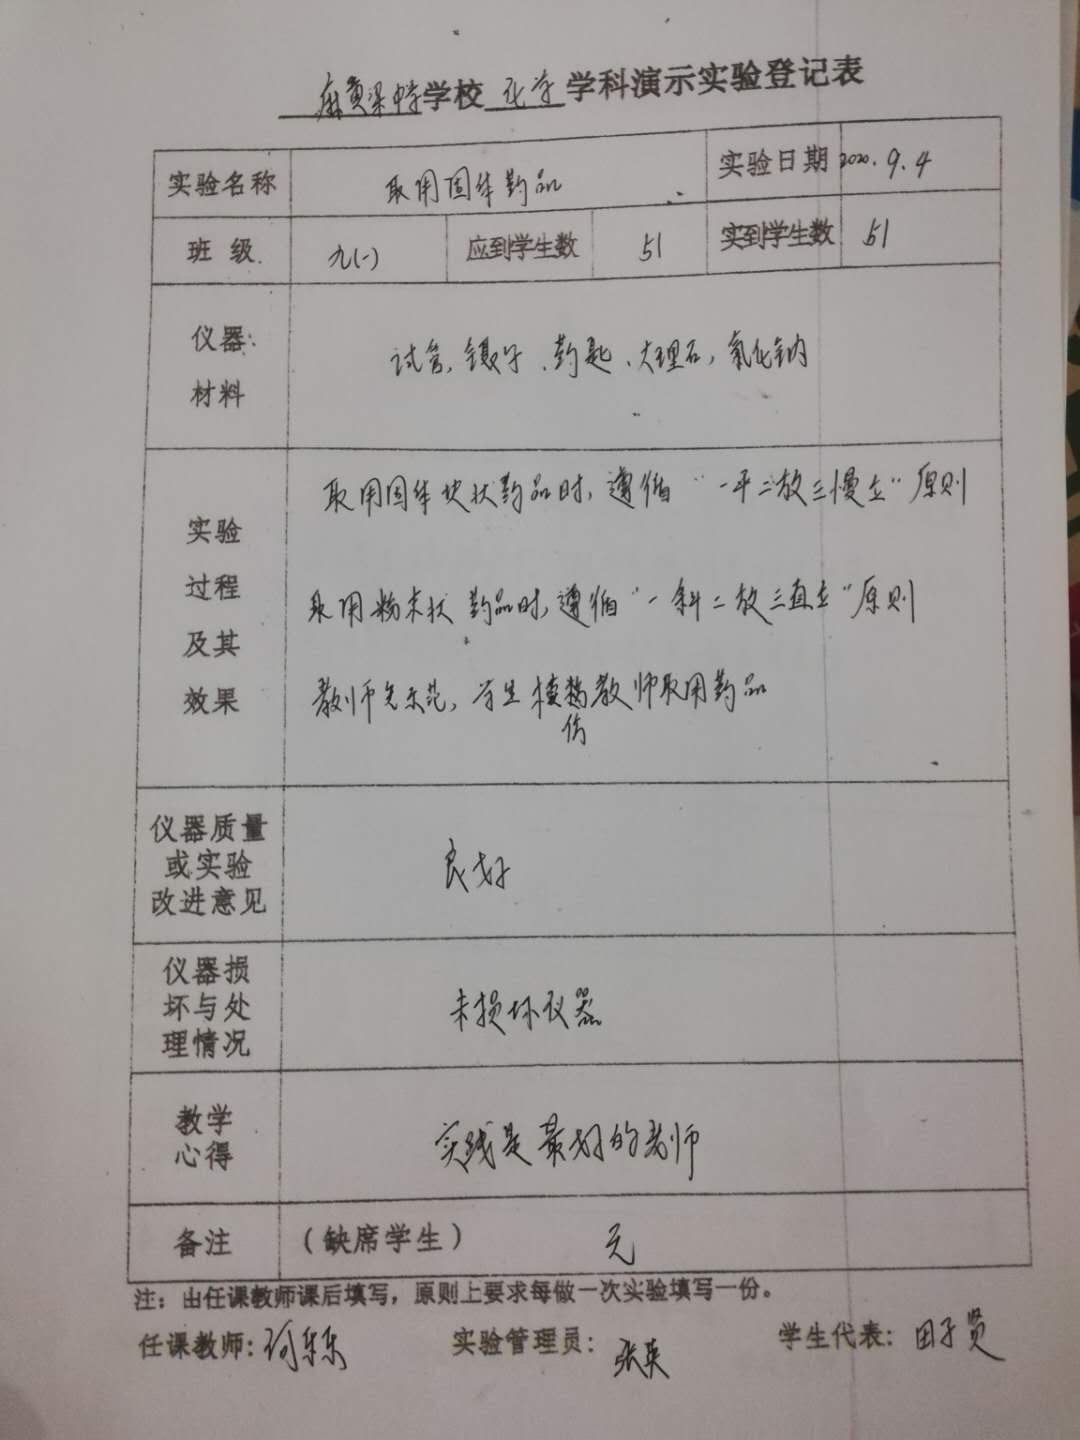 麻黄梁中学学校 化学 学科演示实验登记表
实验名称 取用固体药品 实验日期 2020.9.4
班级 九(一) 应到学生数 51 实到学生数 51
仪器
材料
试管,镊子、药匙、大理石,氯化钠
实验
过程
及其
效果
取用固体块状药品时,遵循"一平二放三慢立"原则
取用粉末状药品时,遵循"一斜二放三直立"原则
教师先示范,学生模仿教师取用药品
仪器质量
或实验
改进意见
良好
仪器损
坏与处
理情况
未损坏仪器
教学
心得
实践是最好的老师
备注 (缺席学生) 无
注:由任课教师课后填写,原则上要求每做一次实验填写一份。
任课教师: 实验管理员:张英 学生代表:田子贤